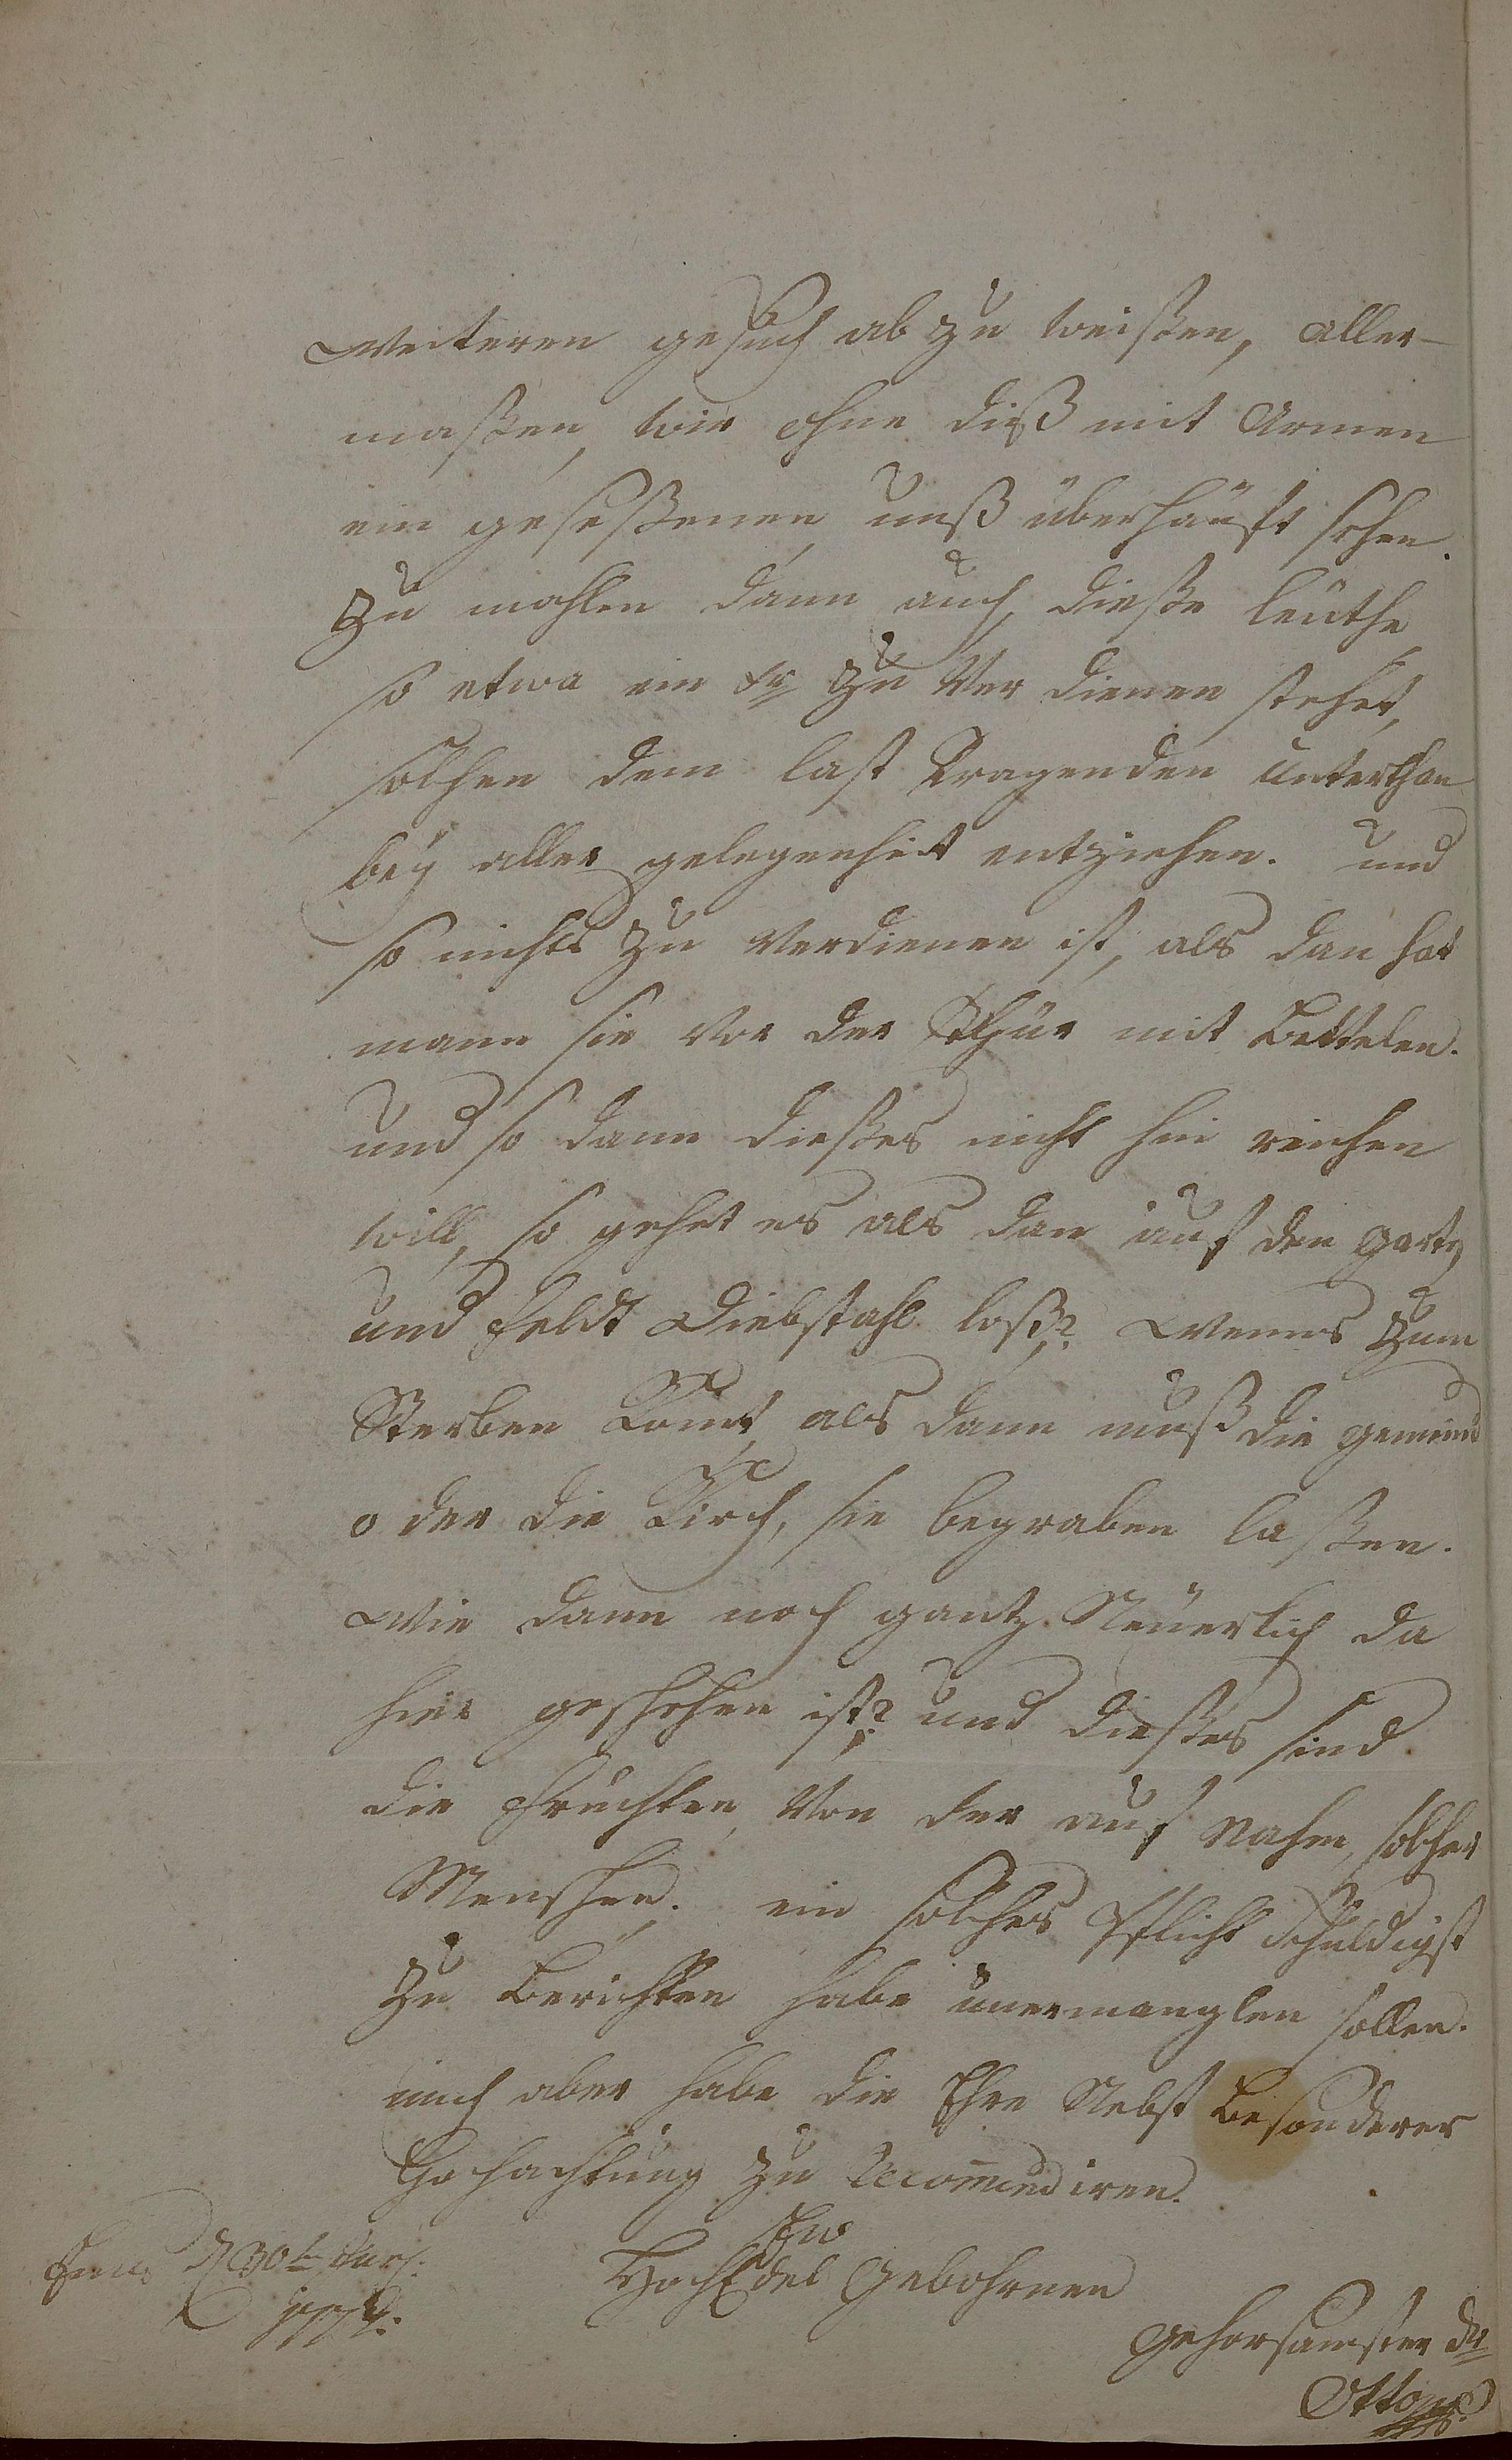 Weiteren gesuch ab zu weißen, aller-
maßen, wir ohne diß mit Armen
ein geseßenen unß überhäuft sehen.
Zu mahlen dann auch, dieße leüthe,
so etwa ein xr Zu Ver dienen stehet,
solchen dem last Tragenden unterthan
beÿ aller gelegenheit entziehen. und
so nichts zu Verdienen ist, als dan hat
mann sie Vor der Thür mit Bettelen.
und so dann dießes nicht hin reichen
will, so gehet es als dan auf den gartz
und feldt Diebstahl loß? Wenns Zum
Sterben Komt, als dann muß die gemeind
o der die Kirch, sie begraben laßen.
Wie dann noch gantz Neuerlich da
hier geschehen ist? und dießes sind
die Fruchten, Von der auf Nahm, solcher
Menschen. ein solches Pflicht schuldigst
Zu Berichten habe unermanglen sollen.
mich aber habe die Ehre Nebst Besonderer
Hochachtung Zu Recomendiren.
Ew
HochEdel Gebohrnen
d 30ten
gehorsamster dr
Otto